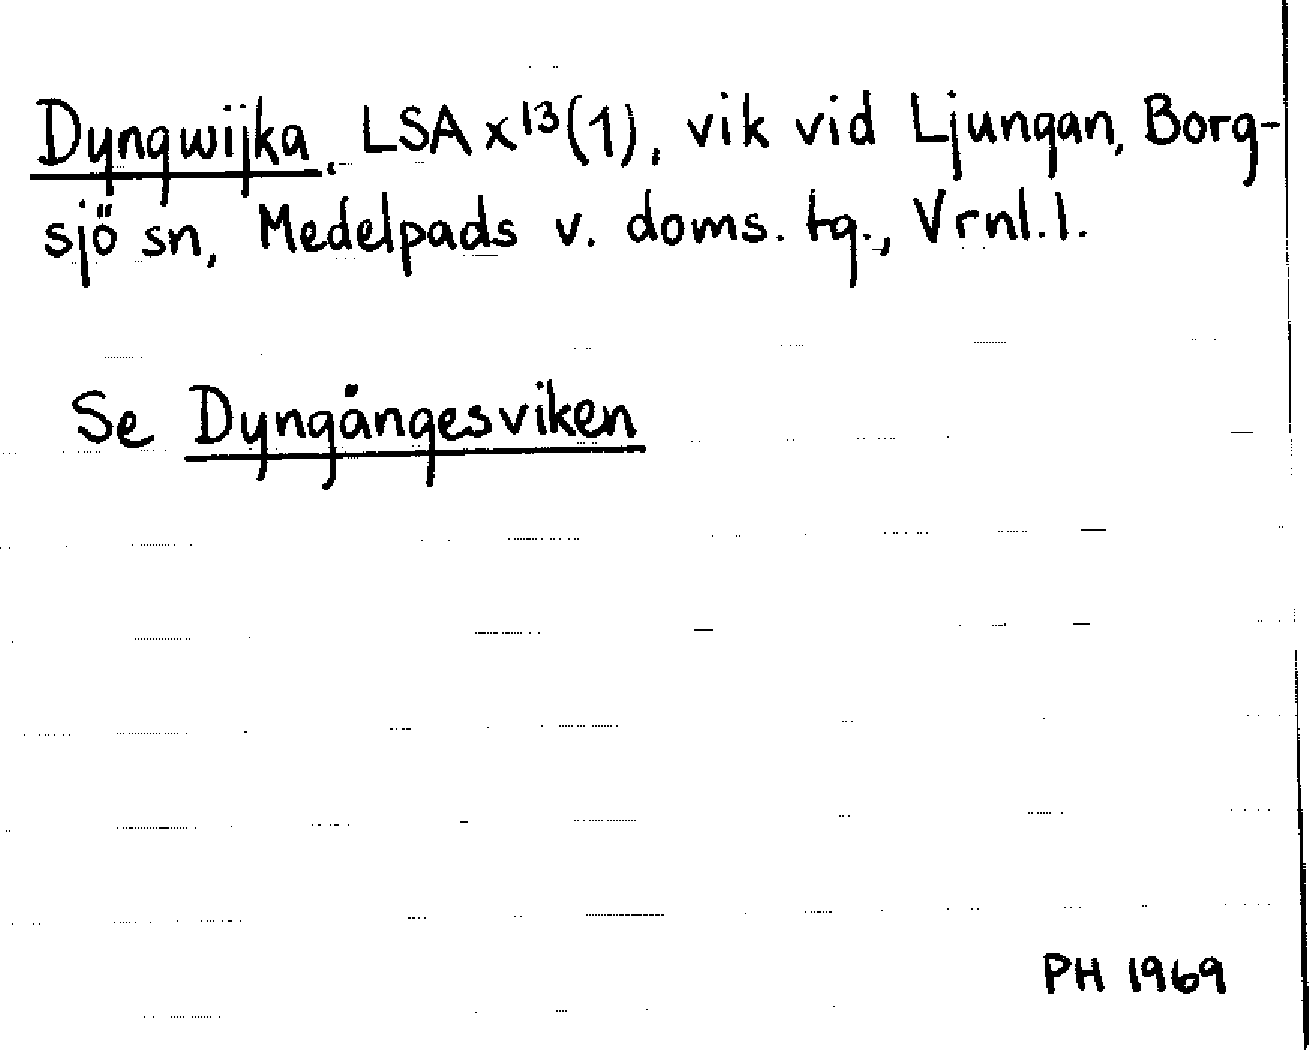 Dyngwijka. LSA x¹³(1), vik vid Ljungan, Borg-
sjö sn, Medelpads v. doms. tg., Vrnl.l.
Se Dyngångesviken
PH 1969